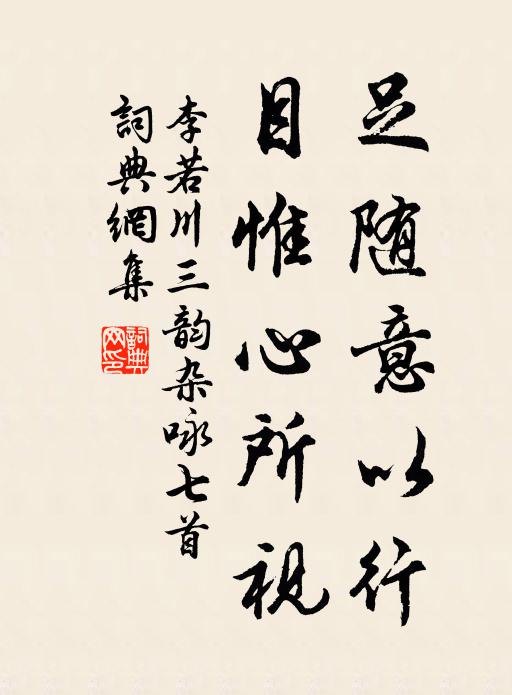 足随意以行
目惟心所视
李若川三韵杂咏七首
詞典網集
詞典网印